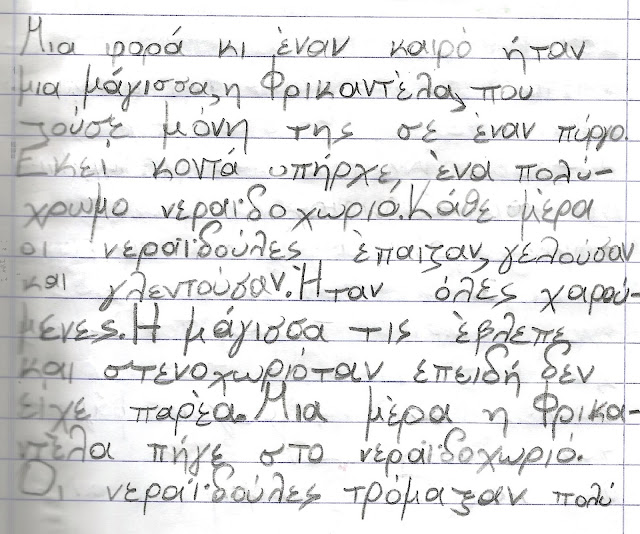 Μια φορά κι έναν καιρό ήταν
μια μάγισσα, η Φρικαντέλα, που
ζούσε μόνη της σε έναν πύργο.
Εκεί κοντά υπήρχε, ένα πολύ-
χρωμο νεραϊδοχωριό. Κάθε μέρα
οι νεραϊδούλες έπαιζαν, γελούσαν
και γλεντούσαν. Ήταν όλες χαρού-
μενες. Η μάγισσα τις έβλεπε
και στενοχωριόταν επειδή δεν
είχε παρέα. Μια μέρα η Φρικα-
ντέλα πήγε στο νεραϊδοχωριό.
Οι νεραϊδούλες τρόμαξαν πολύ